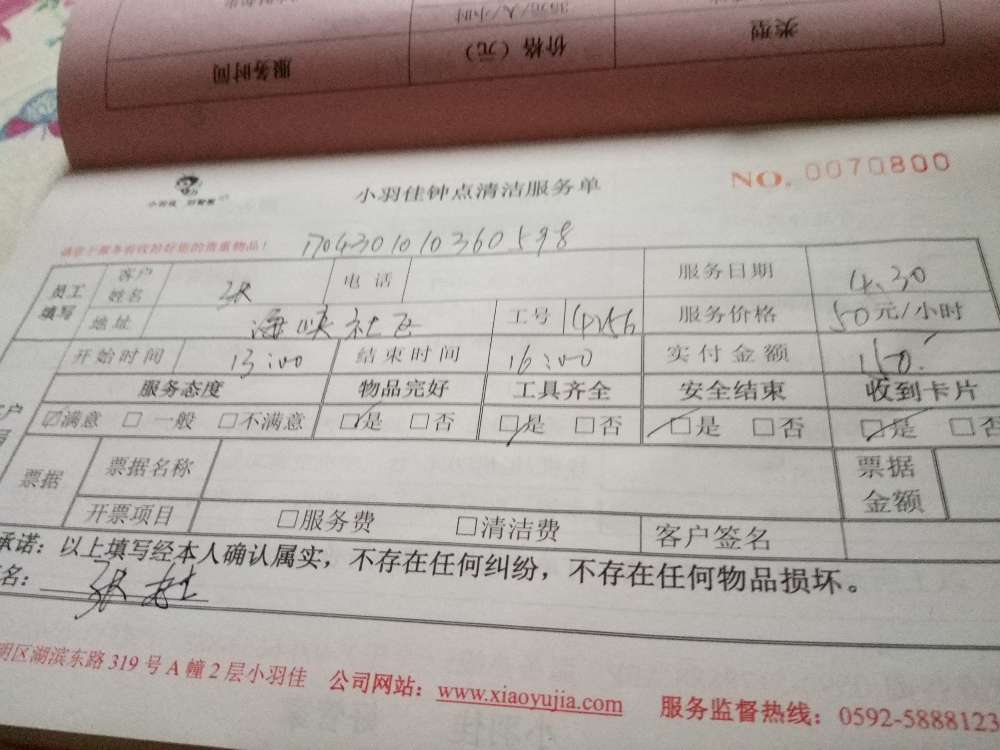 服务时间 价格（元） 类型
35元/人/小时
小羽佳 好管家
小羽佳钟点清洁服务单
NO. 0070800
请您于服务前收拾好您的贵重物品！
1704301010360598
员工填写 客户姓名 张 电话 服务日期 4.30
地址 海峡社区 工号 14156 服务价格 50元/小时
开始时间 13:00 结束时间 16:00 实付金额 150.
服务态度 物品完好 工具齐全 安全结束 收到卡片
☑满意 □一般 □不满意 ☑是 □否 ☑是 □否 ☑是 □否 ☑是 □否
票据 票据名称 票据金额
开票项目 □服务费 □清洁费 客户签名
承诺：以上填写经本人确认属实，不存在任何纠纷，不存在任何物品损坏。
名：张
明区湖滨东路319号A幢2层小羽佳 公司网站：www.xiaoyujia.com 服务监督热线：0592-5888123